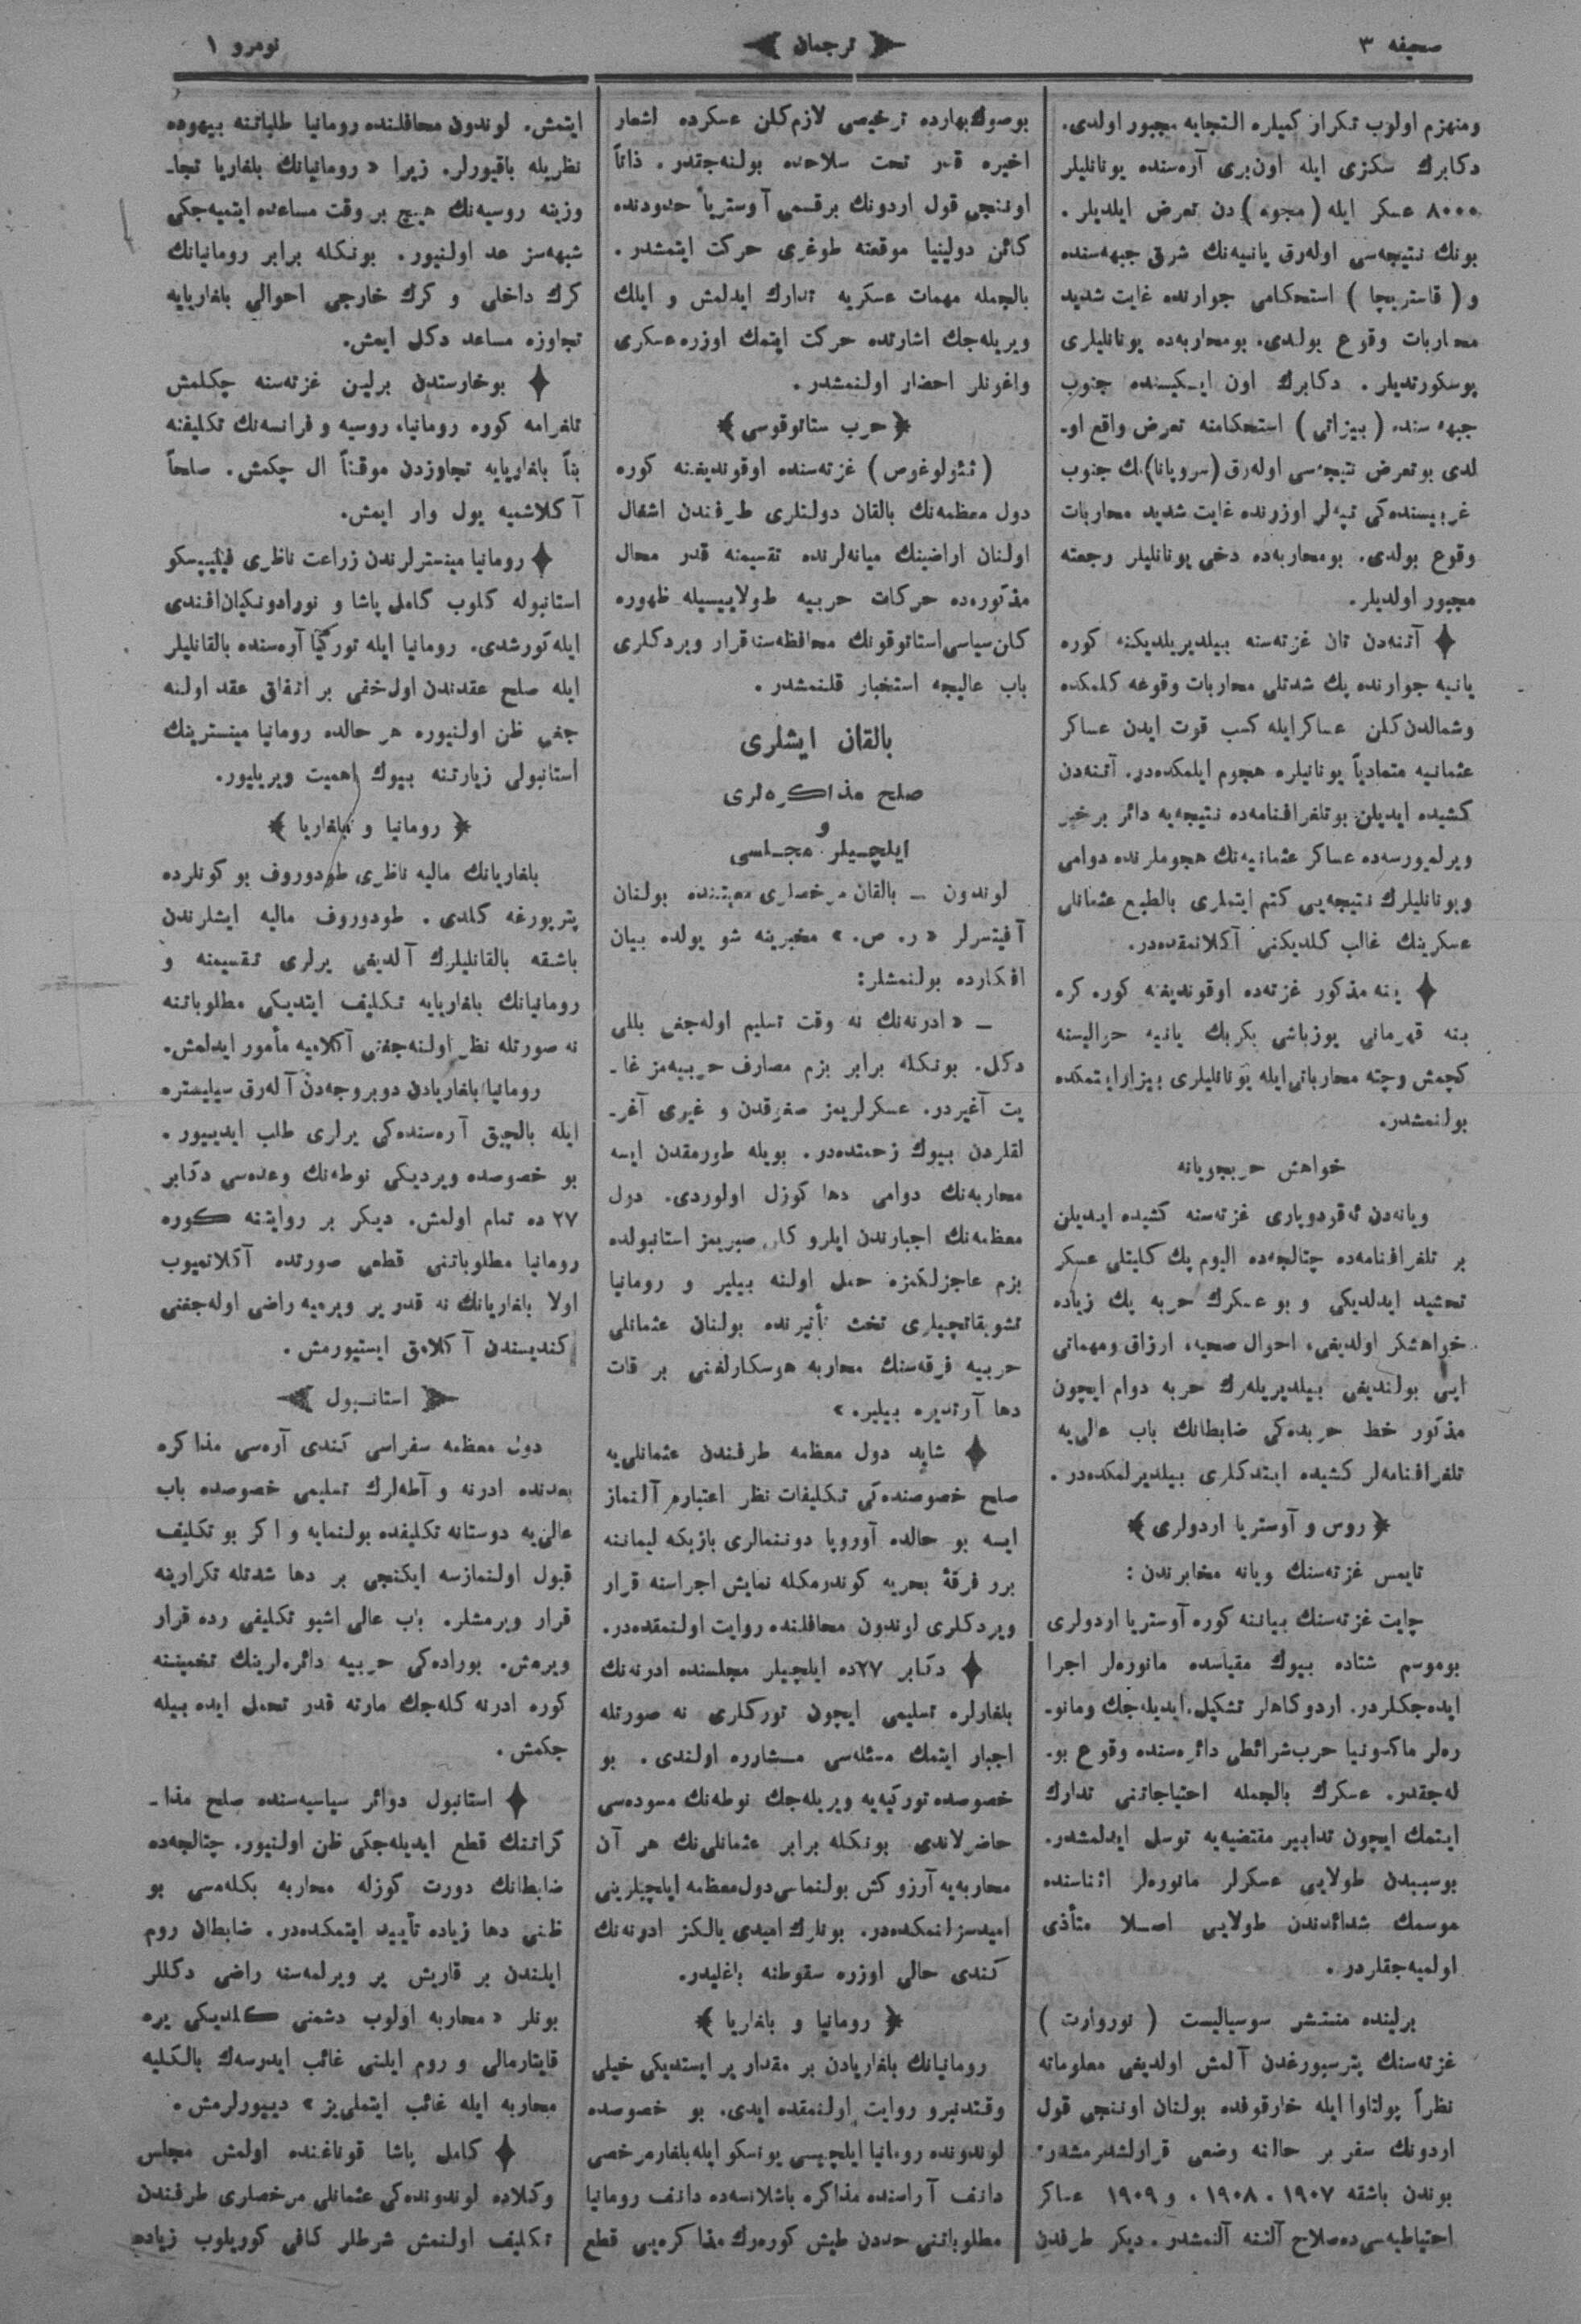 صحیفه ۳
ترجمان
نومرو ۱
ومنهزم اولوب تكرار كميلره التجايه مجبور اولدی.
دكابرك سكزی ايله اون بری آره‌سنده يونانليلر
۸۰۰۰ عسكر ايله (مجوه) دن تعرض ايلديلر.
بونك نتيجه‌سی اوله‌رق يانيه‌نك شرق جبهه‌سنده
و (قاستريجا) استحكامی جوارنده غايت شديد
محاربات وقوع بولدی. بومحاربه‌ده يونانليلری
پوسكورتديلر. دكابرك اون ايكيسنده جنوب
جبهه سنده (بيزانی) استحكامنه تعرض واقع او-
لدی بوتعرض نتيجه‌سی اوله‌رق (سرويانا)نك جنوب
غربيسنده‌كی تپه‌لر اوزرنده غايت شديد محاربات
وقوع بولدی. بومحاربه‌ده دخی يونانليلر رجعته
مجبور اولديلر.
آتنه‌دن تان غزته‌سنه بيلديريلديكنه كوره
يانيه جوارنده پك شدتلی محاربات وقوعه كلمكده
وشمالدن كلن عساكرايله كسب قوت ايدن عساكر
عثمانيه متمادياً يونانيلره هجوم ايلمكده‌در. آتنه‌دن
كشيده ايديلن بوتلغرافنامه‌ده نتيجه‌يه دائر برخبر
ويرلميورسه‌ده عساكر عثمانيه‌نك هجوملرنده دوامی
ويونانليلرك نتيجه‌يی كتم ايتملری بالطبع عثمانلی
عسكرينك غالب كلديكنی آكلاتمقده‌در.
ينه مذكور غزته‌ده اوقونديغنه كوره كره
بنه قهرمانی يوزباشی بكربك يانيه حواليسنه
كچمش وچته محارباتی ايله يونانليلری بيزارايتمكده
بولنمشدر.
خواهش حربجويانه
ويانه‌دن ئه‌قردوپاری غزته‌سنه كشيده ايديلن
بر تلغرافنامه‌ده چتالجه‌ده اليوم پك كليتلی عسكر
تحشيد ايدلديكی و بو عسكرك حربه پك زياده
خواهشكر اولديغی، احوال صحيه، ارزاق ومهماتی
ايی بولنديغی بيلديريله‌رك حربه دوام ايچون
مذكور خط حربده‌كی ضابطانك باب عالی‌يه
تلغرافنامه‌لر كشيده ايتدكلری بيلديرلمكده‌در.
﴿ روس و آوستريا اردولری ﴾
تايمس غزته‌سنك ويانه مخابرندن :
چايت غزته‌سنك بياننه كوره آوستريا اردولری
بوموسم شتاده بيوك مقياسده مانوره‌لر اجرا
ايده‌جكلردر. اردوكاهلر تشكيل ايديله‌جك ومانو-
ره‌لر ماكدونيا حرب شرائطی دائره‌سنده وقوع بو-
له‌جقدر. عسكرك بالجمله احتياجاتنی تدارك
ايتمك ايچون تدابير مقتضيه‌يه توسل ايدلمشدر.
بوسببدن طولايی عسكرلر مانوره‌لر اثناسنده
موسمك شدائدندن طولايی اصلا متأذی
اولميه‌جقلردر.
برلينده منتشر سوسياليست (نوروارت)
غزته‌سنك پترسبورغدن آلمش اولديغی معلوماته
نظراً پولتاوا ايله خارقوفده بولنان اوننجی قول
اردونك سفر بر حالنه وضعی قرارلشدرمشدر.
بوندن باشقه ۱۹۰۷، ۱۹۰۸، و ۱۹۰۹ عساكر
احتياطيه‌سی ده سلاح آلتنه آلنمشدر. ديكر طرفدن
بوصوك بهارده ترخيصی لازم كلن عسكرده اشعار
اخيره قدر تحت سلاحده بولنه‌جقدر. ذاتاً
اوننجی قول اردونك برقسمی آوستريا حدودنده
كائن دولينيا موقعنه طوغری حركت ايتمشدر.
بالجمله مهمات عسكريه تدارك ايدلمش و ايلك
ويريله‌جك اشارتده حركت ايتمك اوزره عسكری
واغونلر احضار اولنمشدر.
﴿ حرب ستاتوقوسی ﴾
(نئولوغوس) غزته‌سنده اوقونديغنه كوره
دول معظمه‌نك بالقان دولتلری طرفندن اشغال
اولنان اراضينك ميانه‌لرنده تقسيمنه قدر محال
مذكوره‌ده حركات حربيه طولاييسيله ظهوره
كلن سياسی استاتوقونك محافظه‌سنه قرار ويردكلری
باب عاليجه استخبار قلنمشدر.
بالقان ايشلری
صلح مذاكره‌لری
و
ايلچيلر مجلسی
لوندون — بالقان مرخصلری معيتنده بولنان
آفيتسرلر «ر. ص.» مخبرينه شو يولده بيان
افكارده بولنمشلر:
— «ادرنه‌نك نه وقت تسليم اوله‌جغی بللی
دكل. بونكله برابر بزم مصارف حربيه‌مز غا-
يت آغيردر. عسكرلريمز صغوقدن و غيری آغر-
لقلردن بيوك زحمتده‌در. بويله طورمقدن ايسه
محاربه‌نك دوامی دها كوزل اولوردی. دول
معظمه‌نك اجبارندن ايلرو كلن صبريمز استانبولده
بزم عاجزلكمزه حمل اولنه بيلير و رومانيا
تشويقاتچيلری تحت تأثيرنده بولنان عثمانلی
حربيه فرقه‌سنك محاربه هوسكارلغنی بر قات
دها آرتديره بيلير.»
شايد دول معظمه طرفندن عثمانلی‌يه
صلح خصوصنده‌كی تكليفات نظر اعتباره آلنماز
ايسه بو حالده آوروپا دونمالری بازيكه ليماننه
برر فرقهٔ بحريه كوندرمكله نمايش اجراسنه قرار
ويردكلری لوندون محافلنده روايت اولنمقده‌در.
دكابر ۲۷ده ايلچيلر مجلسنده ادرنه‌نك
بلغارلره تسليمی ايچون توركلری نه صورتله
اجبار ايتمك مسئله‌سی مشاوره اولندی. بو
خصوصده توركيه‌يه ويريله‌جك نوطه‌نك مسوده‌سی
حاضرلاندی. بونكله برابر عثمانلی‌نك هر آن
محاربه‌يه آرزوكش بولنماسی دول معظمه ايلچيلرينی
اميدسزلنمكده‌در. بونلرك اميدی يالكز ادرنه‌نك
كندی حالی اوزره سقوطنه باغليدر.
﴿ رومانيا و بلغاريا ﴾
رومانيانك بلغاريادن بر مقدار ير ايستديكی خيلی
وقتدنبرو روايت اولنمقده ايدی. بو خصوصده
لوندونده رومانيا ايلچيسی يونسكو ايله بلغار مرخصی
دانف آراسنده مذاكره باشلانسه‌ده دانف رومانيا
مطلوباتنی حددن طيش كوره‌رك مذاكره‌يی قطع
ايتمش. لوندون محافلنده رومانيا طلباتنه بيهوده
نظريله باقيورلر. زيرا «رومانيانك بلغاريا تجا-
وزينه روسيه‌نك هيچ بر وقت مساعده ايتميه‌جكی
شبهه‌سز عد اولنيور. بونكله برابر رومانيانك
كرك داخلی و كرك خارجی احوالی بلغاريايه
تجاوزه مساعد دكل ايمش.
بوخارستدن برلين غزته‌سنه چكلمش
تلغرامه كوره رومانيا، روسيه و فرانسه‌نك تكليفنه
بناً بلغاريايه تجاوزدن موقتاً ال چكمش. صلحاً
آكلاشميه يول وار ايمش.
رومانيا مينسترلرندن زراعت ناظری فيليپسكو
استانبوله كلوب كامل پاشا و نورادونكيان افندی
ايله كورشدی. رومانيا ايله توركيا آره‌سنده بالقانليلر
ايله صلح عقدندن اول خفی بر اتفاق عقد اولنه
جغی ظن اولنيوره هر حالده رومانيا مينسترينك
استانبولی زيارتنه بيوك اهميت ويريليور.
﴿ رومانيا و بلغاريا ﴾
بلغاريانك ماليه ناظری طودوروف بو كونلرده
پتربورغه كلدی. طودوروف ماليه ايشلرندن
باشقه بالقانليلرك آلديغی يرلری تقسيمنه و
رومانيانك بلغاريايه تكليف ايتديكی مطلوباتنه
نه صورتله نظر اولنه‌جغنی آكلاميه مأمور ايدلمش.
رومانيا بلغاريادن دوبروجه‌دن آله‌رق سيليستره
ايله بالچيق آره‌سنده‌كی يرلری طلب ايدييور.
بو خصوصده ويرديكی نوطه‌نك وعده‌سی دكابر
۲۷ ده تمام اولمش. ديكر بر روايتنه كوره
رومانيا مطلوباتنی قطعی صورتده آكلاتميوب
اولا بلغاريانك نه قدر ير ويرميه راضی اوله‌جغنی
كنديسندن آكلامق ايستيورمش.
استانبول
دول معظمه سفراسی كندی آره‌سی مذاكره
بعدنده ادرنه و آطه‌لرك تسليمی خصوصده باب
عالی‌يه دوستانه تكليفده بولنمايه و اكر بو تكليف
قبول اولنمازسه ايكنجی بر دها شدتله تكرارينه
قرار ويرمشلر. باب عالی اشبو تكليفی رده قرار
ويرمش. بوراده‌كی حربيه دائره‌لرينك تخميننه
كوره ادرنه كله‌جك مارته قدر تحمل ايده بيله
جكمش.
استانبول دوائر سياسيه‌سنده صلح مذا-
كراتنك قطع ايديله‌جكی ظن اولنيور. چتالجه‌ده
ضابطانك دورت كوزله محاربه بكله‌مسی بو
ظنی دها زياده تأييد ايتمكده‌در. ضابطان روم
ايلندن بر قاريش ير ويرلمه‌سنه راضی دكللر
بونلر «محاربه اولوب دشمنی كلديكی يره
قايتارمالی و روم ايلنی غائب ايدرسه‌ك بالكليه
محاربه ايله غائب ايتملی‌يز» ديييورلرمش.
كامل پاشا قوناغنده اولمش مجلس
وكلاده لوندونده‌كی عثمانلی مرخصلری طرفندن
تكليف اولنمش شرطلر كافی كوريلوب زياده